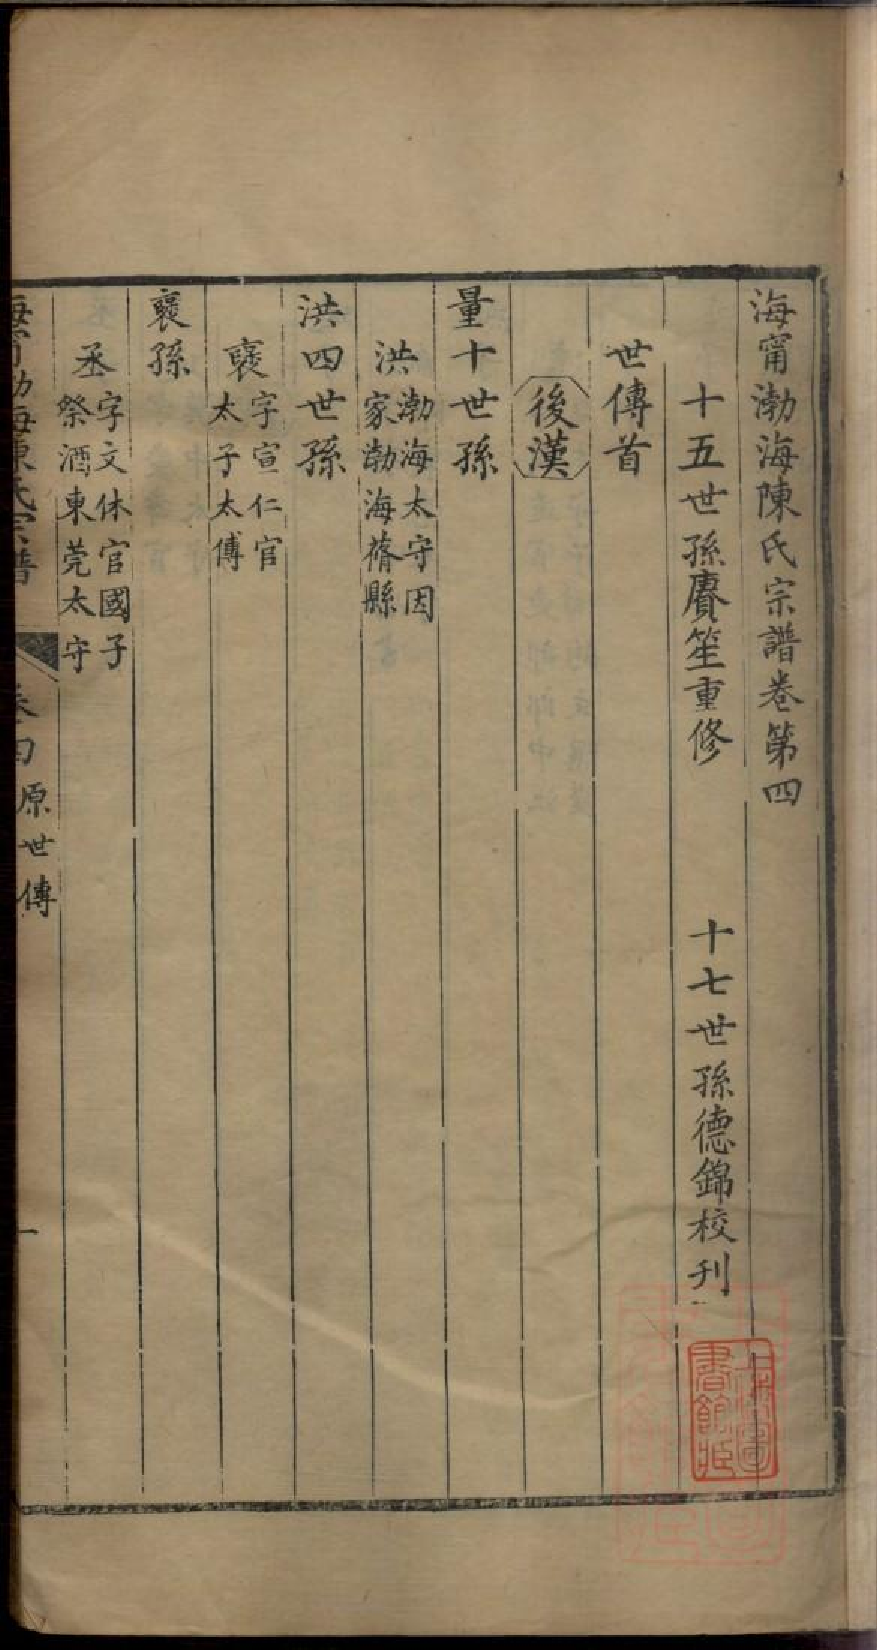 海甯渤海陳氏宗譜卷第四
十五世孫賡笙重修　十七世孫德錦校刊
世傳首
後漢
量十世孫
洪
渤海太守因
家渤海蓨縣
洪四世孫
襃
字宣仁官
太子太傅
襃孫
丞
字文休官國子
祭酒東莞太守
海甯渤海陳氏宗譜
卷四
原世傳
一